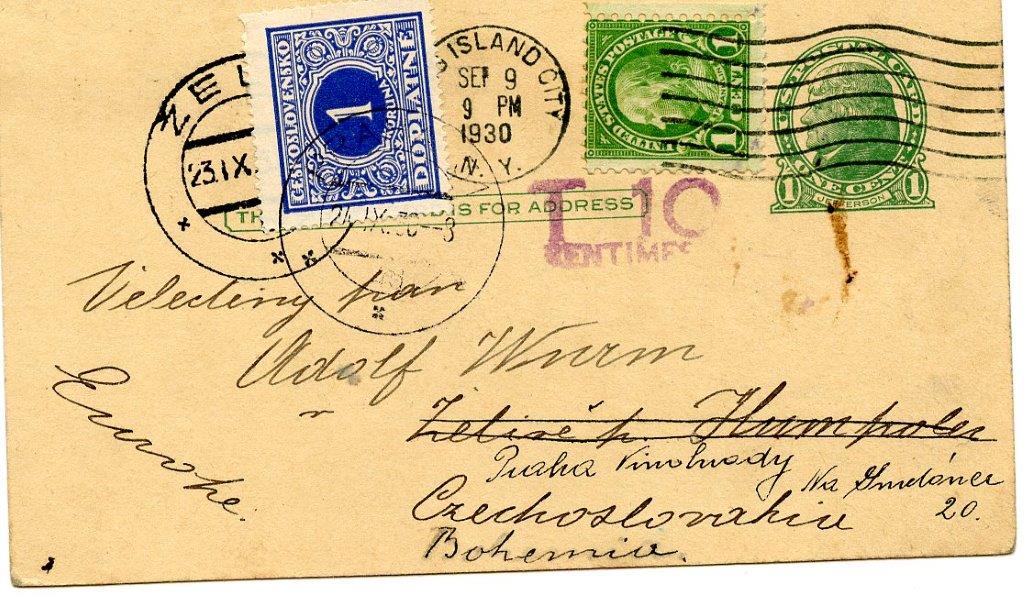 ČESKOSLOVENSKO
1
KORUNA
DOPLATNÉ
ISLAND CITY
SEP 9
9 PM
1930
N. Y.
UNITED STATES POSTAGE
1
1
1
ONE CENT
1
JEFFERSON
ZEL
23.IX.
24.IX.30–8
TH
IS FOR ADDRESS
T 10
CENTIMES
Velectěný pan
Adolf Wurm
Želivě p. Humpolec
Praha Vinohrady
Na Smetance
20.
Czechoslovakia
Bohemia.
Europe.